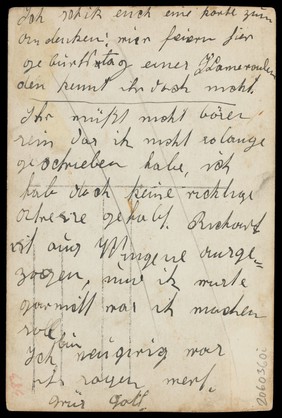 Ich schik euch eine karte zum
andenken! mir feiern hier
geburtstag einer Kameraden
den kennt ihr doch nicht.
Ihr müßt nicht böse
sein das ich nicht solange
geschrieben habe, ich
hab doch keine richtige
adresse gehabt. Richard
ist aus
zogen, nun ich wuste
garnitt was ich machen
soll
Ich bin neugirig was
ihr sagen werd.
grüs Gott
2060360i